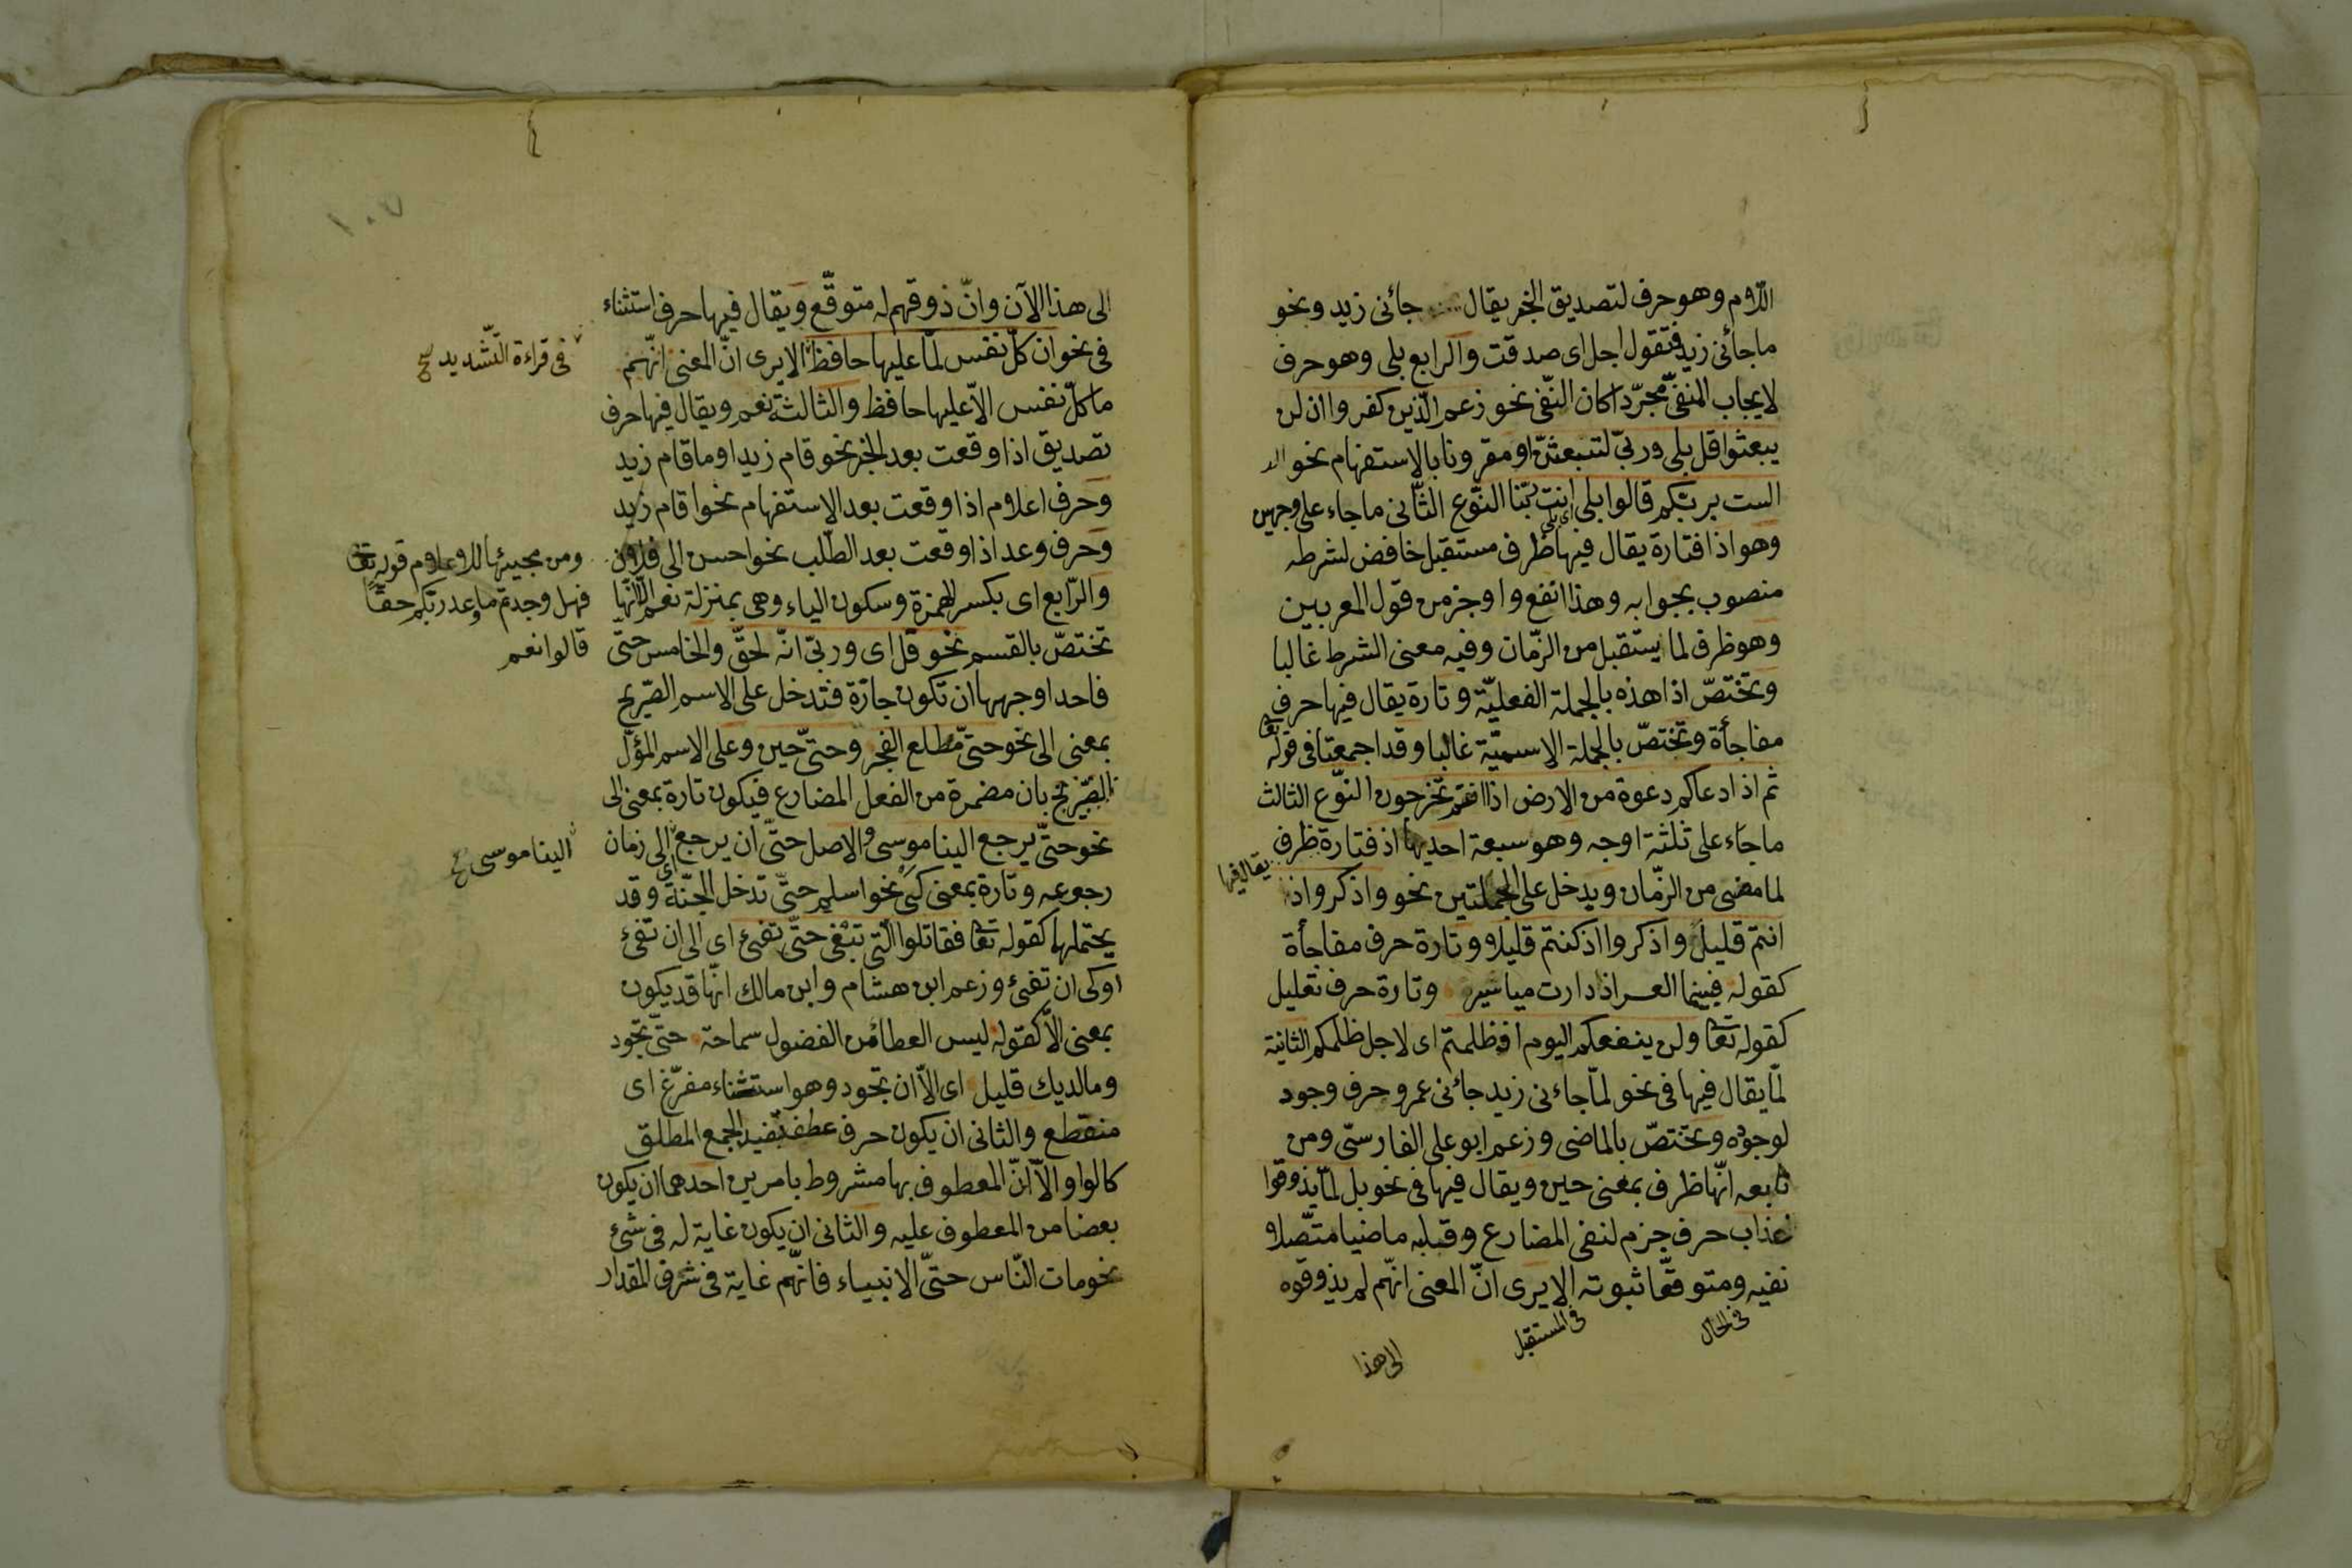 اللام وهو حرف لتصديق الخبر يقال جائنى زيد ونحو
ما جائنى زيد فتقول اجل اى صدقت والرابع بلى وهو حرف
لايجاب المنفىّ مجرّدا كان النّفى نحو زعم الّذين كفروا ان لن
يبعثوا قل بلى وربّى لتبعثنّ او مقرونا بالاستفهام نحو
الست بربّكم قالوا بلى انت ربّنا النّوع الثّانى ما جاء على وجهين
اى بلى
وهو اذا فتارة يقال فيها ظرف مستقبل خافض لشرطه
منصوب بجوابه وهذا انفع واوجز من قول المعربين
وهو ظرف لما يستقبل من الزّمان وفيه معنى الشرط غالبا
وتختصّ اذا هذه بالجملة الفعليّة وتارة يقال فيها حرف
مفاجأة وتختصّ بالجملة الاسميّة غالبا وقد اجمعتا فى قوله تعا
ثم اذا دعاكم دعوة من الارض اذا انتم تخرجون النّوع الثالث
ما جاء على ثلثة اوجه وهو سبعة احديها اذ فتارة ظرف
يقال فيها
لما مضى من الزّمان ويدخل على الجملتين نحو واذكروا اذ
انتم قليل واذكروا اذ كنتم قليلا وتارة حرف مفاجأة
كقوله فبينما العسر اذ دارت مياسير وتارة حرف تعليل
كقوله تعا ولن ينفعكم اليوم اذ ظلمتم اى لاجل ظلمكم الثانية
لمّا يقال فيها فى نحو لمّا جاءنى زيد جائنى عمرو حرف وجود
لوجوده وتختصّ بالماضى وزعم ابو على الفارسىّ ومن
تابعه انّها ظرف بمعنى حين ويقال فيها فى نحو بل لمّا يذوقوا
عذاب حرف جزم لنفى المضارع وقبله ماضيا متّصلا
نفيه ومتوقّعا ثبوته الا يرى انّ المعنى انّهم لم يذوقوه
فى الحال
فى المستقبل
الى هذا
١٠٧
الى هذا الآن وانّ ذوقهم له متوقّع ويقال فيها حرف استثناء
فى نحو ان كلّ نفس لمّا عليها حافظ الا يرى انّ المعنى انّهم
فى قراءة التّشديد صح
ما كلّ نفس الاّ عليها حافظ والثالثة نعم ويقال فيها حرف
تصديق اذا وقعت بعد الخبر نحو قام زيد او ما قام زيد
وحرف اعلام اذا وقعت بعد الاستفهام نحو اقام زيد
وحرف وعد اذا وقعت بعد الطّلب نحو احسن الى فلان
ومن مجيئها للاعلام قوله تعا
فهل وجدتم ما وعد ربّكم حقّا
قالوا نعم
والرّابع اى بكسر الهمزة وسكون الياء وهى بمنزلة نعم الّا انّها
تختصّ بالقسم نحو قل اى وربّى انّه لحقّ والخامس حتّى
فاحد اوجهها ان تكون جارّة فتدخل على الاسم الصّريح
بمعنى الى نحو حتّى مطلع الفجر وحتّى حين وعلى الاسم المؤل
الصّريح بان مضمرة من الفعل المضارع فيكون تارة بمعنى الى
نحو حتّى يرجع الينا موسى والاصل حتّى ان يرجع الى زمان
الينا موسى صح
اى
رجوعه وتارة بمعنى كى نحو اسلم حتّى تدخل الجنّة وقد
يحتملها كقوله تعا فقاتلوا الّتى تبغى حتّى تفىئ اى الى ان تفىئ
او كى ان تفىئ وزعم ابن هشام وابن مالك انّها قد يكون
بمعنى الاّ كقوله ليس العطاء من الفضول سماحة حتّى تجود
وما لديك قليل اى الاّ ان تجود وهو استثناء مفرّغ اى
منقطع والثانى ان يكون حرف عطف تفيد الجمع المطلق
كالواو الاّ انّ المعطوف بها مشروط بامرين احدهما ان يكون
بعضا من المعطوف عليه والثانى ان يكون غاية له فى شئ
نحو مات النّاس حتّى الانبياء فانّهم غاية فى شرف المقدار